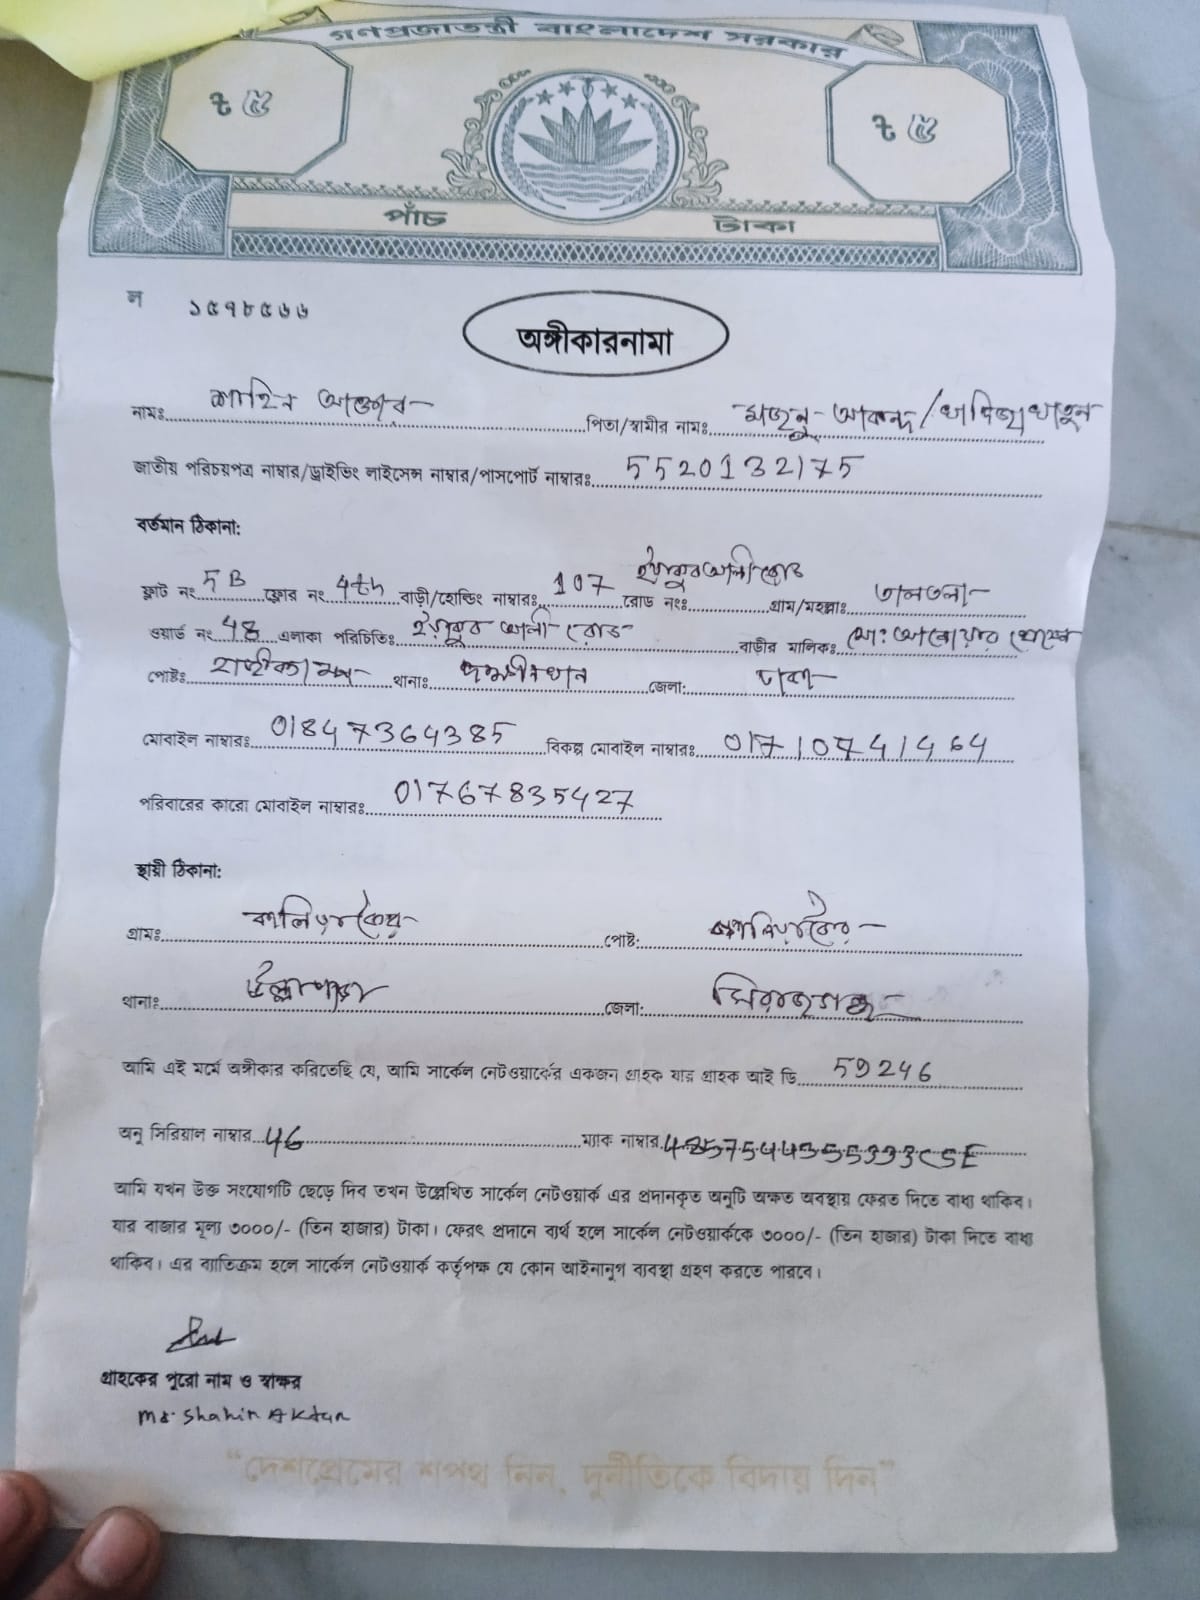 গণপ্রজাতন্ত্রী বাংলাদেশ সরকার
৳ ৫ ৳ ৫
পাঁচ টাকা
ল ১৫৭৮৫৬৬
অঙ্গীকারনামা
নামঃ শাহিন আক্তার পিতা/স্বামীর নামঃ মজনু আকন্দ/খাদিজা খাতুন
জাতীয় পরিচয়পত্র নাম্বার/ড্রাইভিং লাইসেন্স নাম্বার/পাসপোর্ট নাম্বারঃ 5520132175
বর্তমান ঠিকানা:
ফ্লাট নং 5B ফ্লোর নং 4th বাড়ী/হোল্ডিং নাম্বারঃ 107 রোড নংঃ ইয়াকুব আলী রোড গ্রাম/মহল্লাঃ তালতলা
ওয়ার্ড নং 48 এলাকা পরিচিতিঃ ইয়াকুব আলী রোড বাড়ীর মালিকঃ মো: আনোয়ার হোসেন
পোষ্টঃ থানাঃ দক্ষিণখান জেলা: ঢাকা
মোবাইল নাম্বারঃ 01847364385 বিকল্প মোবাইল নাম্বারঃ 01710741464
পরিবারের কারো মোবাইল নাম্বারঃ 01767835427
স্থায়ী ঠিকানা:
গ্রামঃ পোষ্ট:
থানাঃ উল্লাপাড়া জেলা: সিরাজগঞ্জ
আমি এই মর্মে অঙ্গীকার করিতেছি যে, আমি সার্কেল নেটওয়ার্কের একজন গ্রাহক যার গ্রাহক আই ডি 59246
অনু সিরিয়াল নাম্বার 46 ম্যাক নাম্বার
আমি যখন উক্ত সংযোগটি ছেড়ে দিব তখন উল্লেখিত সার্কেল নেটওয়ার্ক এর প্রদানকৃত অনুটি অক্ষত অবস্থায় ফেরত দিতে বাধ্য থাকিব।
যার বাজার মূল্য ৩০০০/- (তিন হাজার) টাকা। ফেরৎ প্রদানে ব্যর্থ হলে সার্কেল নেটওয়ার্ককে ৩০০০/- (তিন হাজার) টাকা দিতে বাধ্য
থাকিব। এর ব্যতিক্রম হলে সার্কেল নেটওয়ার্ক কর্তৃপক্ষ যে কোন আইনানুগ ব্যবস্থা গ্রহণ করতে পারবে।
গ্রাহকের পুরো নাম ও স্বাক্ষর
Md. Shahin Aktar
“দেশপ্রেমের শপথ নিন, দুর্নীতিকে বিদায় দিন”